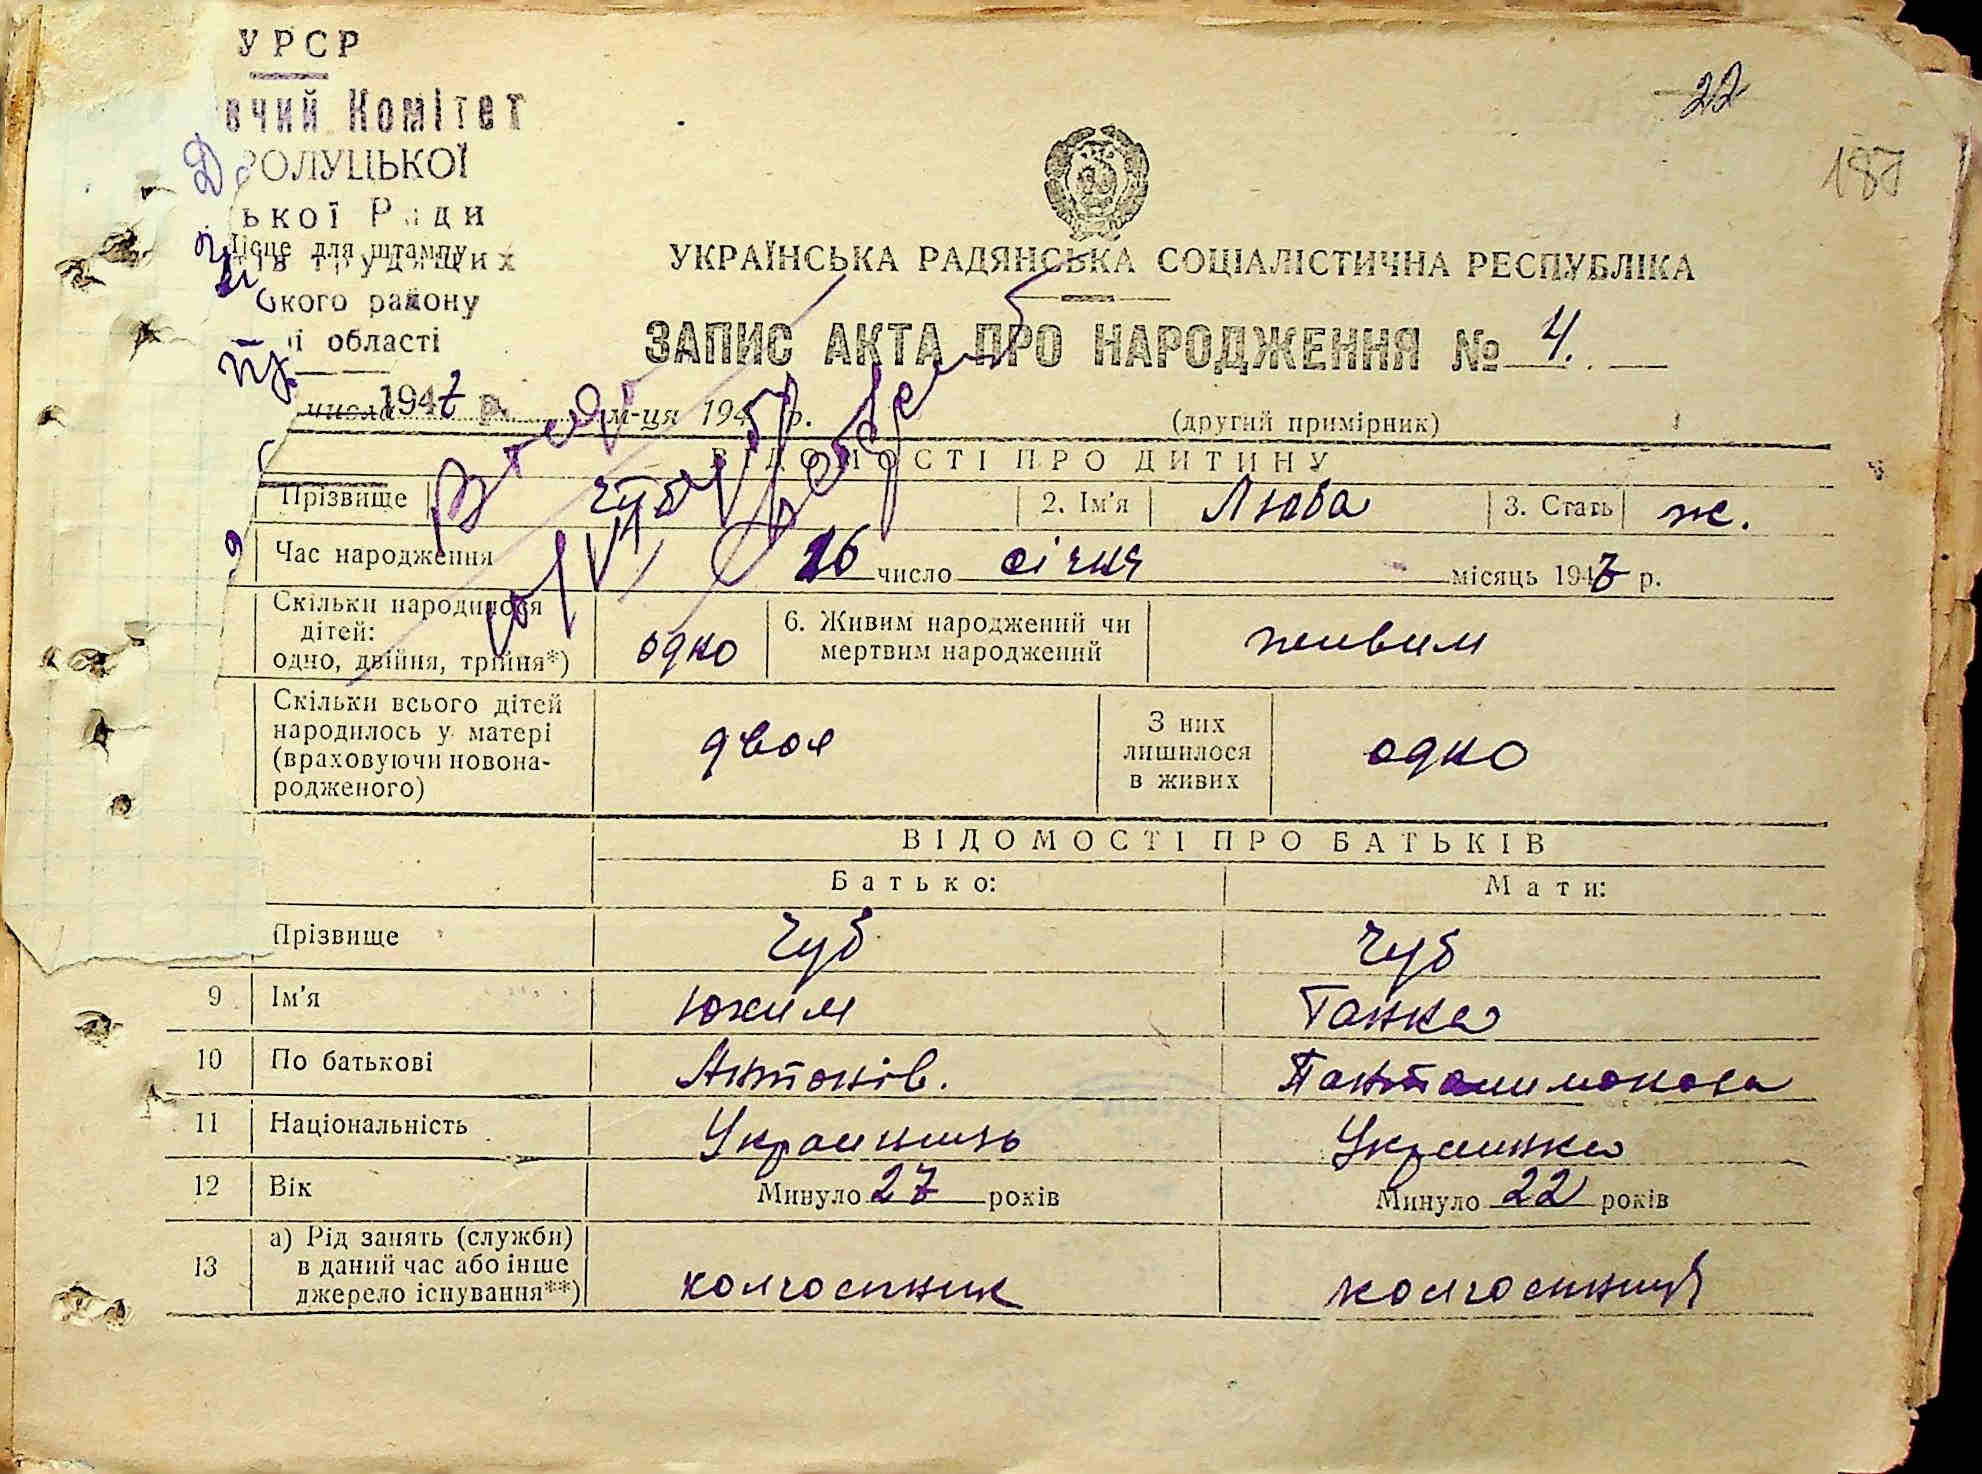 УРСР
вчий Комітет
РОЛУЦЬКОЇ
ької Ради
Місце для штампу
трудящих
ського району
ї області
числа 1947 р. м-ця 194 р.
22
187
УКРАЇНСЬКА РАДЯНСЬКА СОЦІАЛІСТИЧНА РЕСПУБЛІКА
ЗАПИС АКТА ПРО НАРОДЖЕННЯ № 4.
(другий примірник)
ВІДОМОСТІ ПРО ДИТИНУ
Прізвище Чуб 2. Ім'я Люба 3. Стать ж.
Час народження 16 число січня місяць 1947 р.
Скільки народилося дітей: одно, двійня, трійня*) одно 6. Живим народжений чи мертвим народжений живим
Скільки всього дітей народилось у матері (враховуючи новона-родженого) двоя З них лишилося в живих одно
ВІДОМОСТІ ПРО БАТЬКІВ
Батько: Мати:
Прізвище Чуб Чуб
9 Ім'я Юхим Ганна
10 По батькові Антонів. Пантелимонова
11 Національність Украинець Украинка
12 Вік Минуло 27 років Минуло 22 років
13 а) Рід занять (служби) в даний час або інше джерело існування**) колгоспник колгоспниця